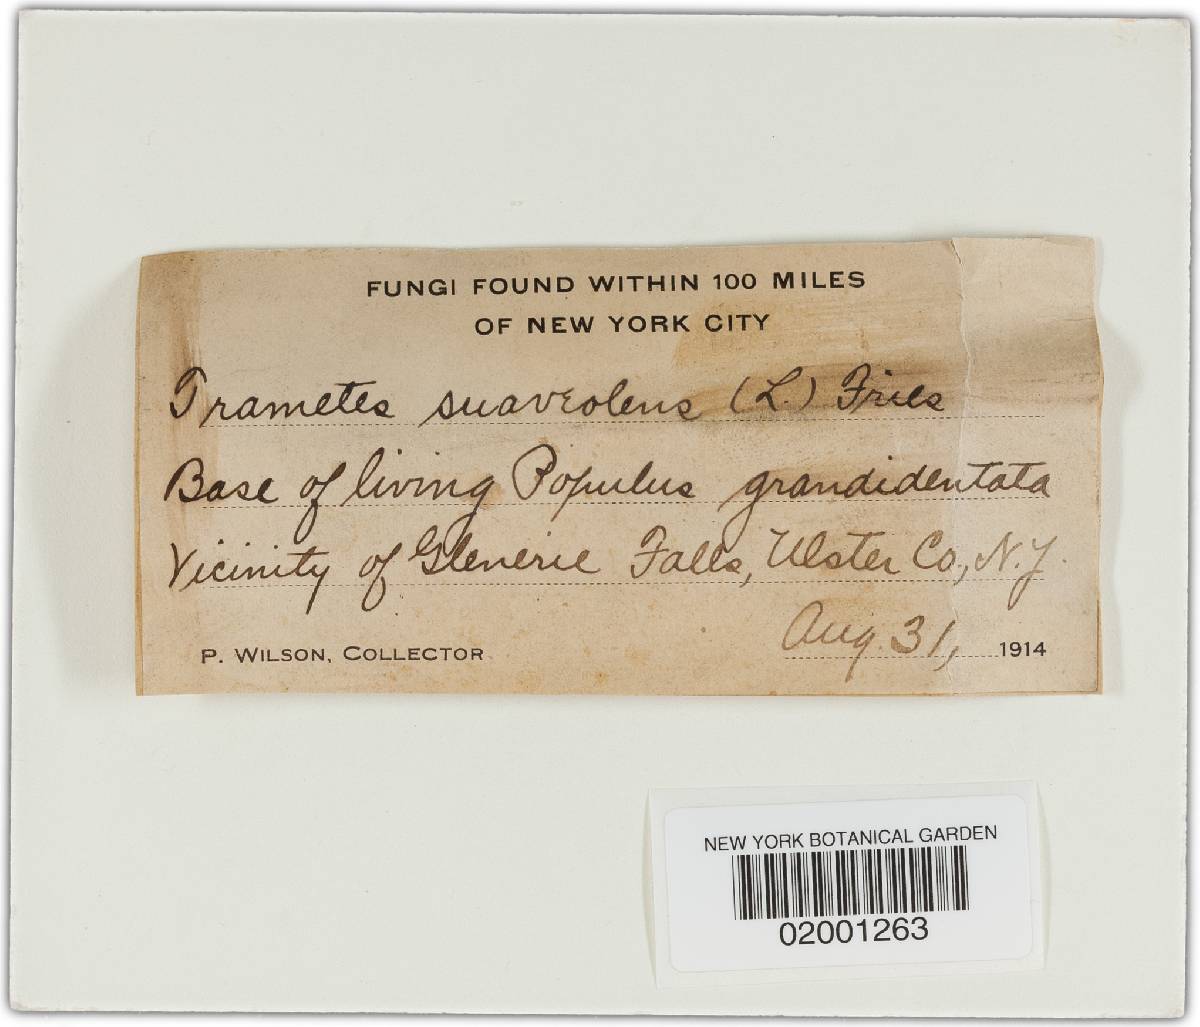 FUNGI FOUND WITHIN 100 MILES
OF NEW YORK CITY
Trametes suaveolens (L.) Fries
Base of living Populus grandidentata
Vicinity of Glenerie Falls, Ulster Co., N.Y.
Aug. 31, 1914
P. WILSON, COLLECTOR
NEW YORK BOTANICAL GARDEN
02001263